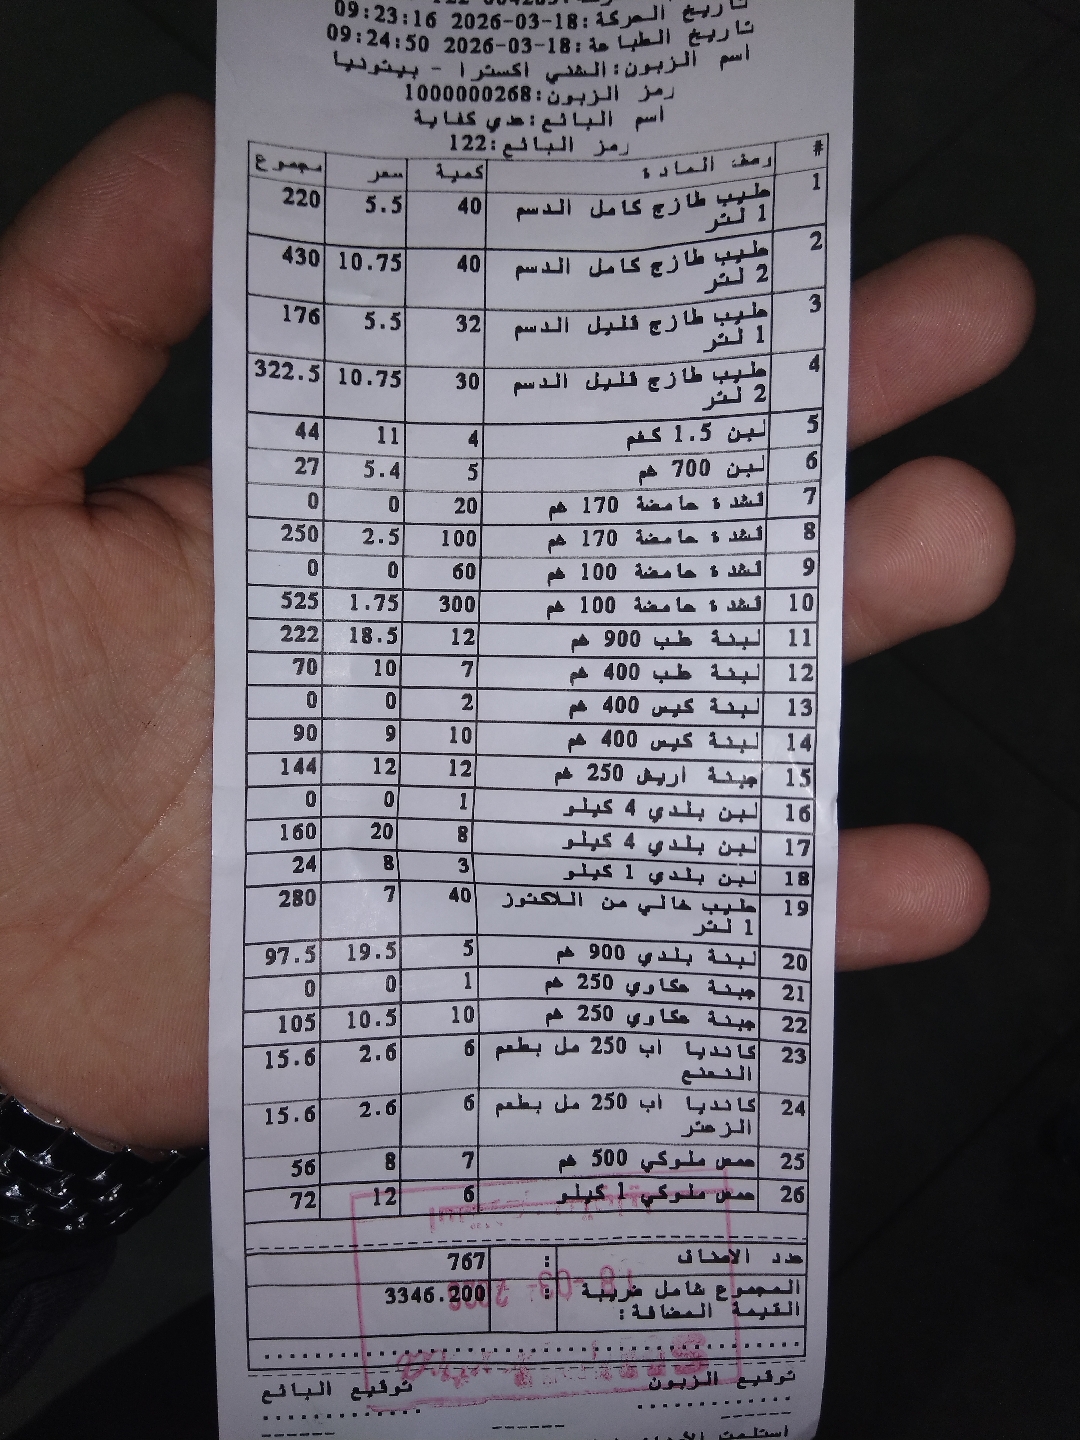 تاريخ الحركة:18-03-2026 09:23:16
تاريخ الطباعة:18-03-2026 09:24:50
اسم الزبون:الشني اكسترا - بيتونيا
رمز الزبون:1000000268
اسم البائع:عدي كفاية
رمز البائع:122
# وصف المادة كمية سعر مجموع
1 حليب طازج كامل الدسم 40 5.5 220
1 لتر
2 حليب طازج كامل الدسم 40 10.75 430
2 لتر
3 حليب طازج قليل الدسم 32 5.5 176
1 لتر
4 حليب طازج قليل الدسم 30 10.75 322.5
2 لتر
5 لبن 1.5 كغم 4 11 44
6 لبن 700 غم 5 5.4 27
7 قشدة حامضة 170 غم 20 0 0
8 قشدة حامضة 170 غم 100 2.5 250
9 قشدة حامضة 100 غم 60 0 0
10 قشدة حامضة 100 غم 300 1.75 525
11 لبنة علب 900 غم 12 18.5 222
12 لبنة علب 400 غم 7 10 70
13 لبنة كيس 400 غم 2 0 0
14 لبنة كيس 400 غم 10 9 90
15 جبنة اريش 250 غم 12 12 144
16 لبن بلدي 4 كيلو 1 0 0
17 لبن بلدي 4 كيلو 8 20 160
18 لبن بلدي 1 كيلو 3 8 24
19 حليب خالي من اللاكتوز 40 7 280
1 لتر
20 لبنة بلدي 900 غم 5 19.5 97.5
21 جبنة عكاوي 250 غم 1 0 0
22 جبنة عكاوي 250 غم 10 10.5 105
23 كانديا اب 250 مل بطعم 6 2.6 15.6
النعنع
24 كانديا اب 250 مل بطعم 6 2.6 15.6
الزعتر
25 حمص ملوكي 500 غم 7 8 56
26 حمص ملوكي 1 كيلو 6 12 72
عدد الاصناف : 767
المجموع شامل ضريبة : 3346.200
القيمة المضافة:
توقيع الزبون توقيع البائع
استلمت